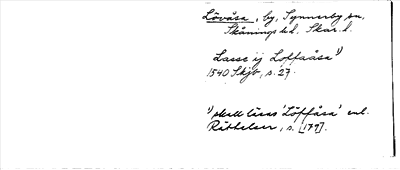 Lövåsa, by, Synnerby sn,
Skånings hd. Skar. l.
Lasse ij Loffaåsa 1)
1540 Skjb, s. 27.
1) skall läsas 'Löffåsa' enl.
Rättelser, s. [179].